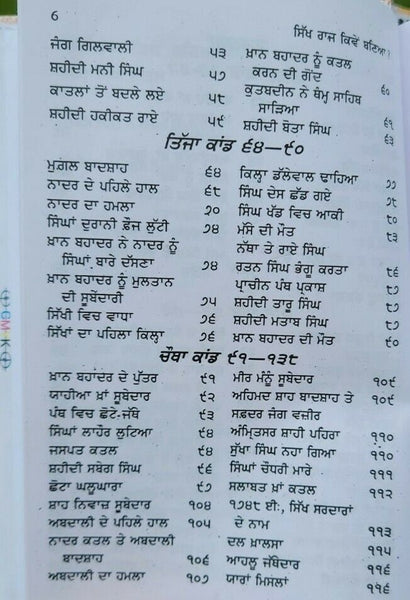 6
ਸਿੱਖ ਰਾਜ ਕਿਵੇਂ ਬਣਿਆ ?
ਜੰਗ ਗਿਲਵਾਲੀ ੫੩
ਸ਼ਹੀਦੀ ਮਨੀ ਸਿੰਘ ੫੭
ਕਾਤਲਾਂ ਤੋਂ ਬਦਲੇ ਲਏ ੫੮
ਸ਼ਹੀਦੀ ਹਕੀਕਤ ਰਾਏ ੫੯
ਖ਼ਾਨ ਬਹਾਦਰ ਨੂੰ ਕਤਲ
ਕਰਨ ਦੀ ਗੋਂਦ ੬੦
ਕੁਤਬਦੀਨ ਨੇ ਥੰਮ੍ਹ ਸਾਹਿਬ
ਸਾੜਿਆ ੬੧
ਸ਼ਹੀਦੀ ਬੋਤਾ ਸਿੰਘ ੬੩
ਤਿੱਜਾ ਕਾਂਡ ੬੪—੯੦
ਮੁਗ਼ਲ ਬਾਦਸ਼ਾਹ ੬੪
ਨਾਦਰ ਦੇ ਪਹਿਲੇ ਹਾਲ ੬੮
ਨਾਦਰ ਦਾ ਹਮਲਾ ੭੦
ਸਿੰਘਾਂ ਦੁਰਾਨੀ ਫ਼ੌਜ ਲੁੱਟੀ ੭੪
ਖ਼ਾਨ ਬਹਾਦਰ ਨੇ ਨਾਦਰ ਨੂੰ
ਸਿੰਘਾਂ ਬਾਰੇ ਦੱਸਣਾ ੭੪
ਖ਼ਾਨ ਬਹਾਦਰ ਨੂੰ ਮੁਲਤਾਨ
ਦੀ ਸੂਬੇਦਾਰੀ ੭੫
ਸਿੱਖੀ ਵਿਚ ਵਾਧਾ ੭੬
ਸਿੱਖਾਂ ਦਾ ਪਹਿਲਾ ਕਿਲ੍ਹਾ ੭੬
ਕਿਲ੍ਹਾ ਡੱਲੇਵਾਲ ਢਾਹਿਆ ੭੭
ਸਿੰਘ ਦੇਸ ਛੱਡ ਗਏ ੭੮
ਸਿੰਘ ਖੱਡ ਵਿਚ ਆਕੀ ੮੦
ਮੱਸੇ ਦੀ ਮੌਤ ੮੩
ਨੱਥਾ ਤੇ ਰਾਏ ਸਿੰਘ
ਰਤਨ ਸਿੰਘ ਭੰਗੂ ਕਰਤਾ ੮੬
ਪ੍ਰਾਚੀਨ ਪੰਥ ਪ੍ਰਕਾਸ਼ ੮੭
ਸ਼ਹੀਦੀ ਤਾਰੂ ਸਿੰਘ ੮੭
ਸ਼ਹੀਦੀ ਮਤਾਬ ਸਿੰਘ ੮੭
ਖ਼ਾਨ ਬਹਾਦਰ ਦੀ ਮੌਤ ੯੦
ਚੌਥਾ ਕਾਂਡ ੯੧—੧੩੮
ਖ਼ਾਨ ਬਹਾਦਰ ਦੇ ਪੁੱਤਰ ੯੧
ਯਾਹੀਆ ਖ਼ਾਂ ਸੂਬੇਦਾਰ ੯੨
ਪੰਥ ਵਿਚ ਛੋਟੇ-ਜੱਥੇ ੯੩
ਸਿੰਘਾਂ ਲਾਹੌਰ ਲੁਟਿਆ ੯੪
ਜਸਪਤ ਕਤਲ ੯੪
ਸ਼ਹੀਦੀ ਸਬੇਗ ਸਿੰਘ ੯੬
ਛੋਟਾ ਘਲੂਘਾਰਾ ੯੭
ਸ਼ਾਹ ਨਿਵਾਜ਼ ਸੂਬੇਦਾਰ ੧੦੪
ਅਬਦਾਲੀ ਦੇ ਪਹਿਲੇ ਹਾਲ ੧੦੫
ਨਾਦਰ ਕਤਲ ਤੇ ਅਬਦਾਲੀ
ਬਾਦਸ਼ਾਹ ੧੦੬
ਅਬਦਾਲੀ ਦਾ ਹਮਲਾ ੧੦੭
ਮੀਰ ਮੰਨੂੰ ਸੂਬੇਦਾਰ ੧੦੯
ਅਹਿਮਦ ਸ਼ਾਹ ਬਾਦਸ਼ਾਹ ਤੇ ੧੦੯
ਸਫ਼ਦਰ ਜੰਗ ਵਜ਼ੀਰ
ਅੰਮ੍ਰਿਤਸਰ ਸ਼ਾਹੀ ਪਹਿਰਾ ੧੧੦
ਸੁੱਖਾ ਸਿੰਘ ਨਹਾ ਗਿਆ ੧੧੦
ਸਿੰਘਾਂ ਚੌਧਰੀ ਮਾਰੇ ੧੧੧
ਸਲਾਬਤ ਖ਼ਾਂ ਕਤਲ ੧੧੨
੧੭੪੮ ਈ:, ਸਿੱਖ ਸਰਦਾਰਾਂ
ਦੇ ਨਾਮ ੧੧੩
ਦਲ ਖ਼ਾਲਸਾ ੧੧੫
ਆਹਲੂ ਜਥੇਦਾਰ ੧੧੬
ਯਾਰਾਂ ਮਿਸਲਾਂ ੧੧੬